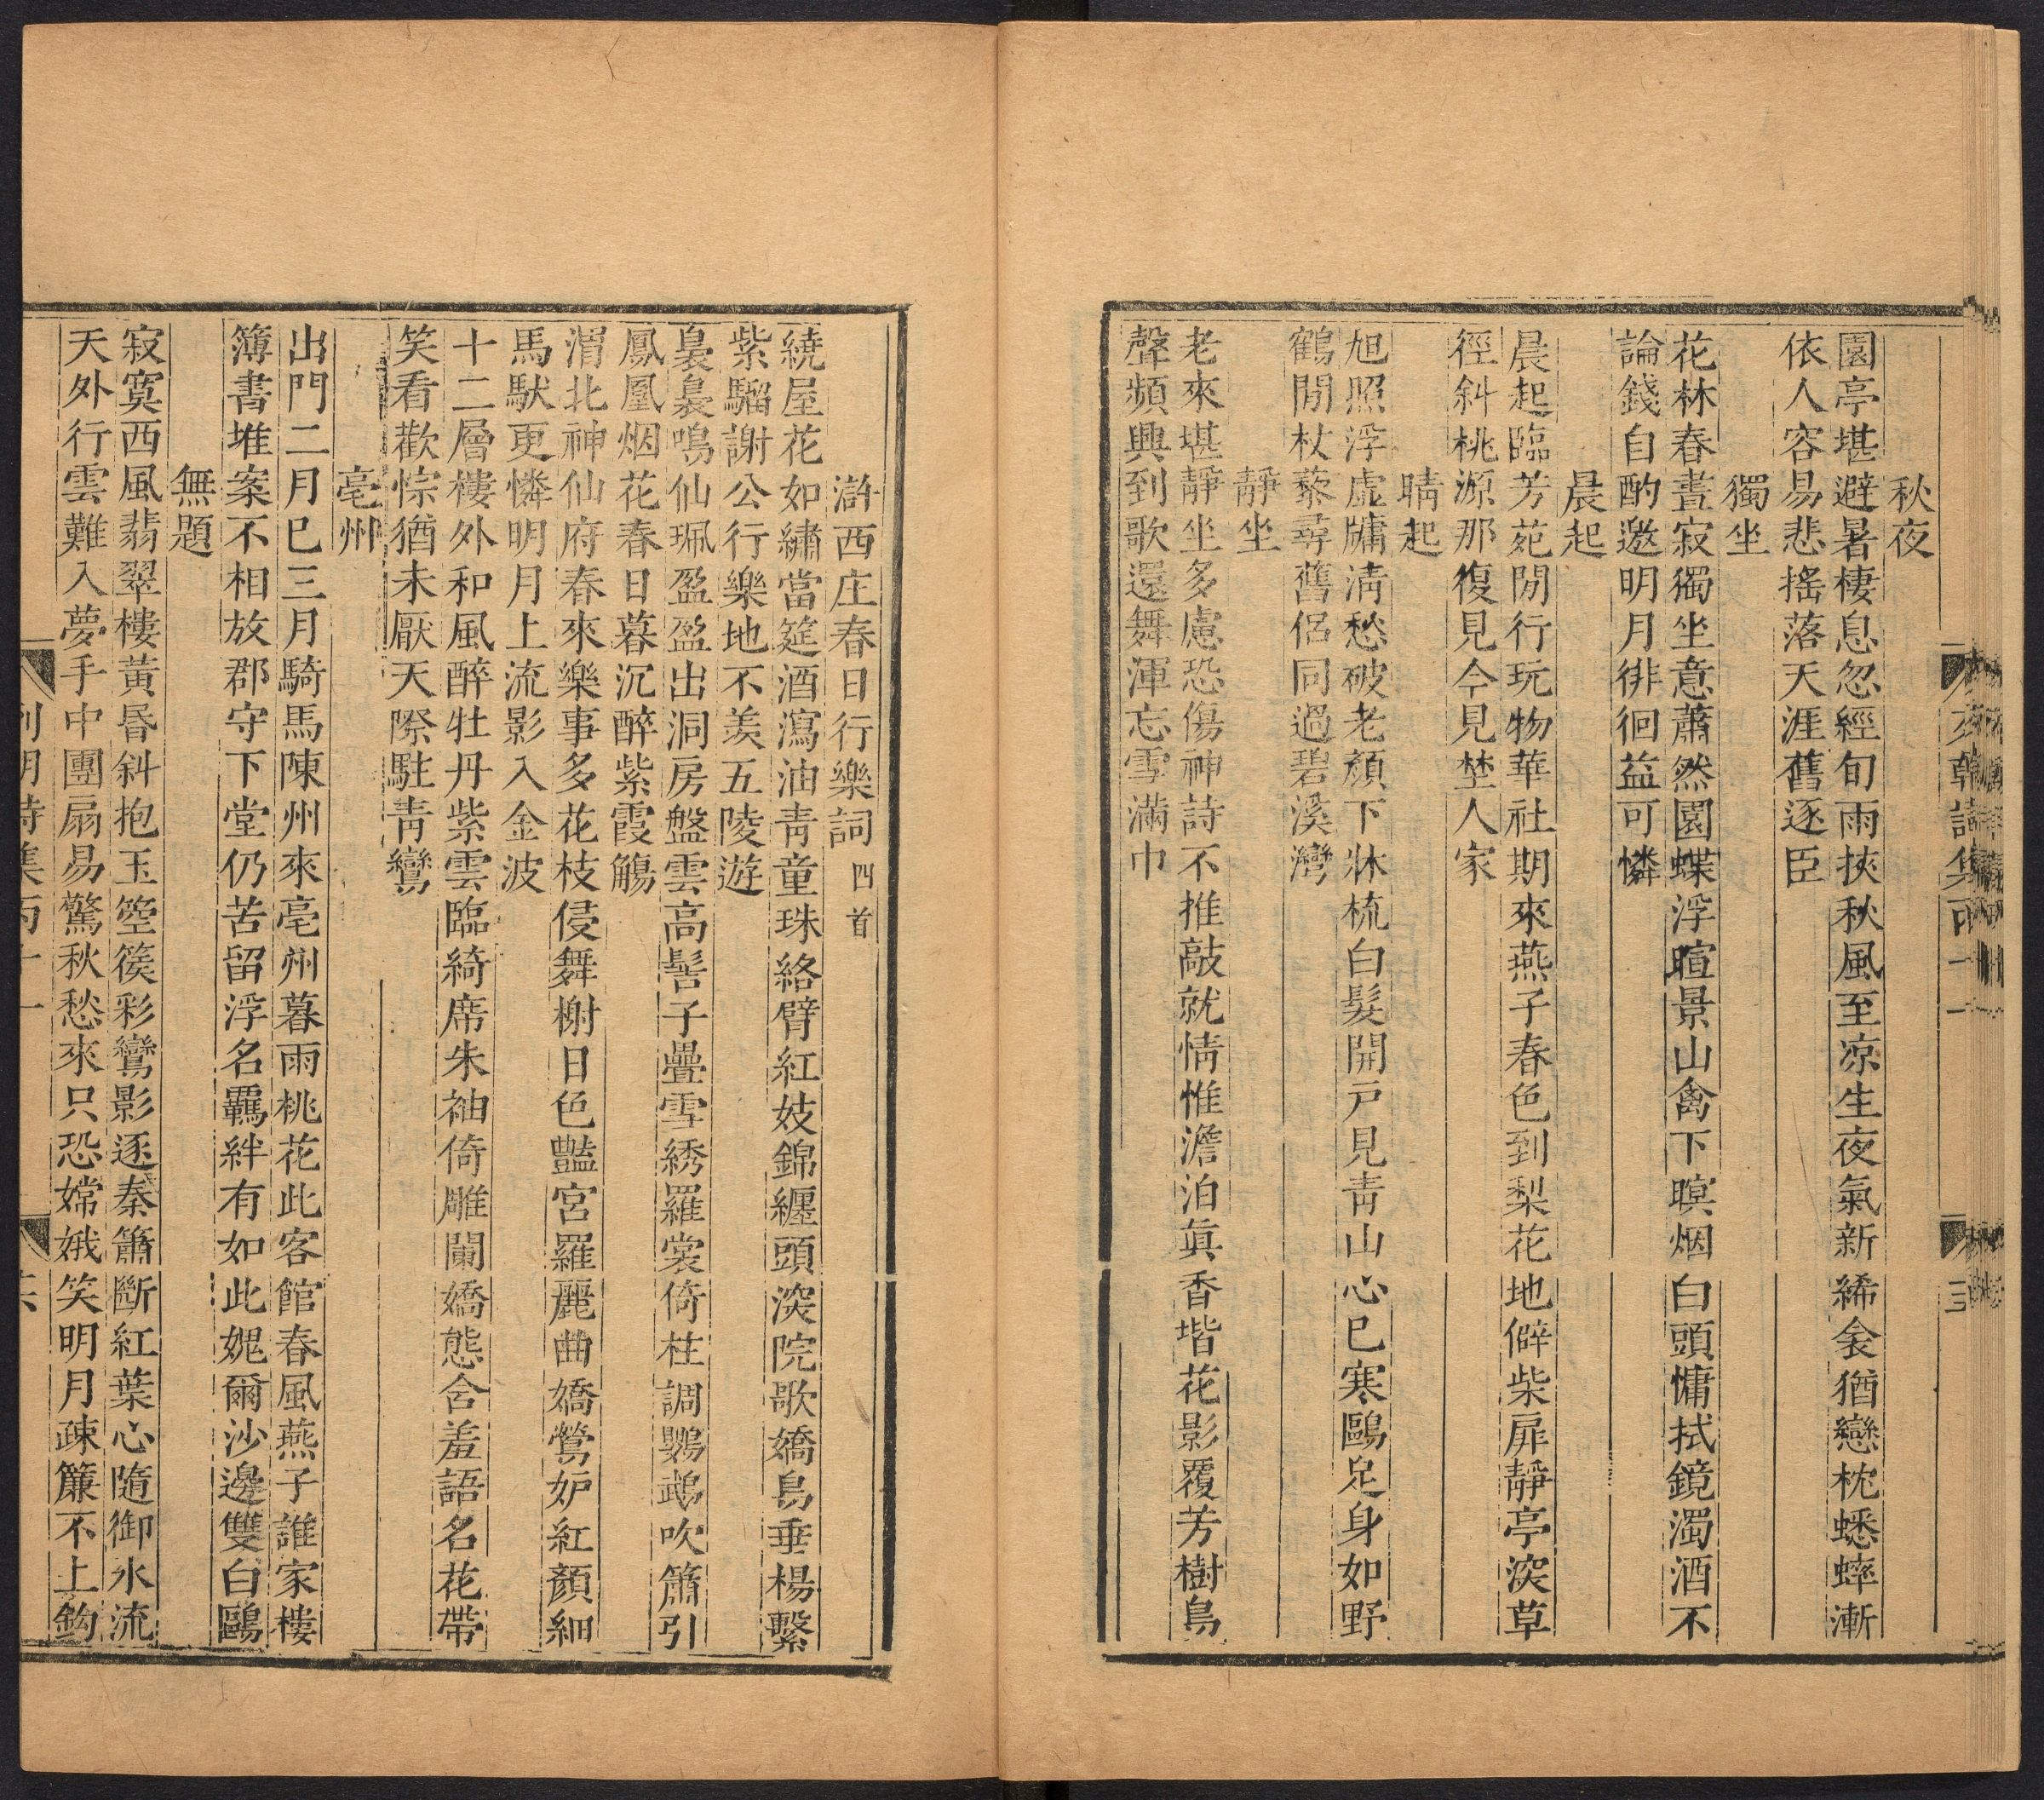 秋夜
園亭堪避暑棲息忽經旬雨挾秋風至凉生夜氣新絺衾猶戀枕蟋蟀漸
依人容易悲搖落天涯舊逐臣
獨坐
花林春晝寂獨坐意蕭然園蝶浮暄景山禽下暝烟白頭慵拭鏡濁酒不
論錢自酌邀明月徘徊益可憐
晨起
晨起臨芳苑閒行玩物華社期來燕子春色到梨花地僻柴扉靜亭深草
徑斜桃源那復見今見埜人家
晴起
旭照浮虛牖清愁破老顏下牀梳白髮開戶見青山心已寒鷗足身如野
鶴閒杖藜尋舊侶同過碧溪灣
靜坐
老來堪靜坐多慮恐傷神詩不推敲就情惟澹泊眞香堦花影覆芳樹鳥
聲頻興到歌還舞渾忘雪滿巾
滸西庄春日行樂詞四首
繞屋花如繡當筵酒瀉油青童珠絡臂紅妓錦纏頭深院歌嬌鳥垂楊繫
紫騮謝公行樂地不羨五陵遊
裊裊鳴仙珮盈盈出洞房盤雲高髻子疊雪綉羅裳倚柱調鸚鵡吹簫引
鳳凰烟花春日暮沉醉紫霞觴
渭北神仙府春來樂事多花枝侵舞榭日色豔宮羅麗曲嬌鶯妒紅顏細
馬馱更憐明月上流影入金波
十二層樓外和風醉牡丹紫雲臨綺席朱袖倚雕闌嬌態含羞語名花帶
笑看歡悰猶未厭天際駐青鸞
亳州
出門二月已三月騎馬陳州來亳州暮雨桃花此客館春風燕子誰家樓
簿書堆案不相放郡守下堂仍苦留浮名羈絆有如此媿爾沙邊雙白鷗
無題
寂寞西風翡翠樓黃昏斜抱玉箜篌彩鸞影逐秦簫斷紅葉心隨御水流
天外行雲難入夢手中團扇易驚秋愁來只恐嫦娥笑明月疎簾不上鈎